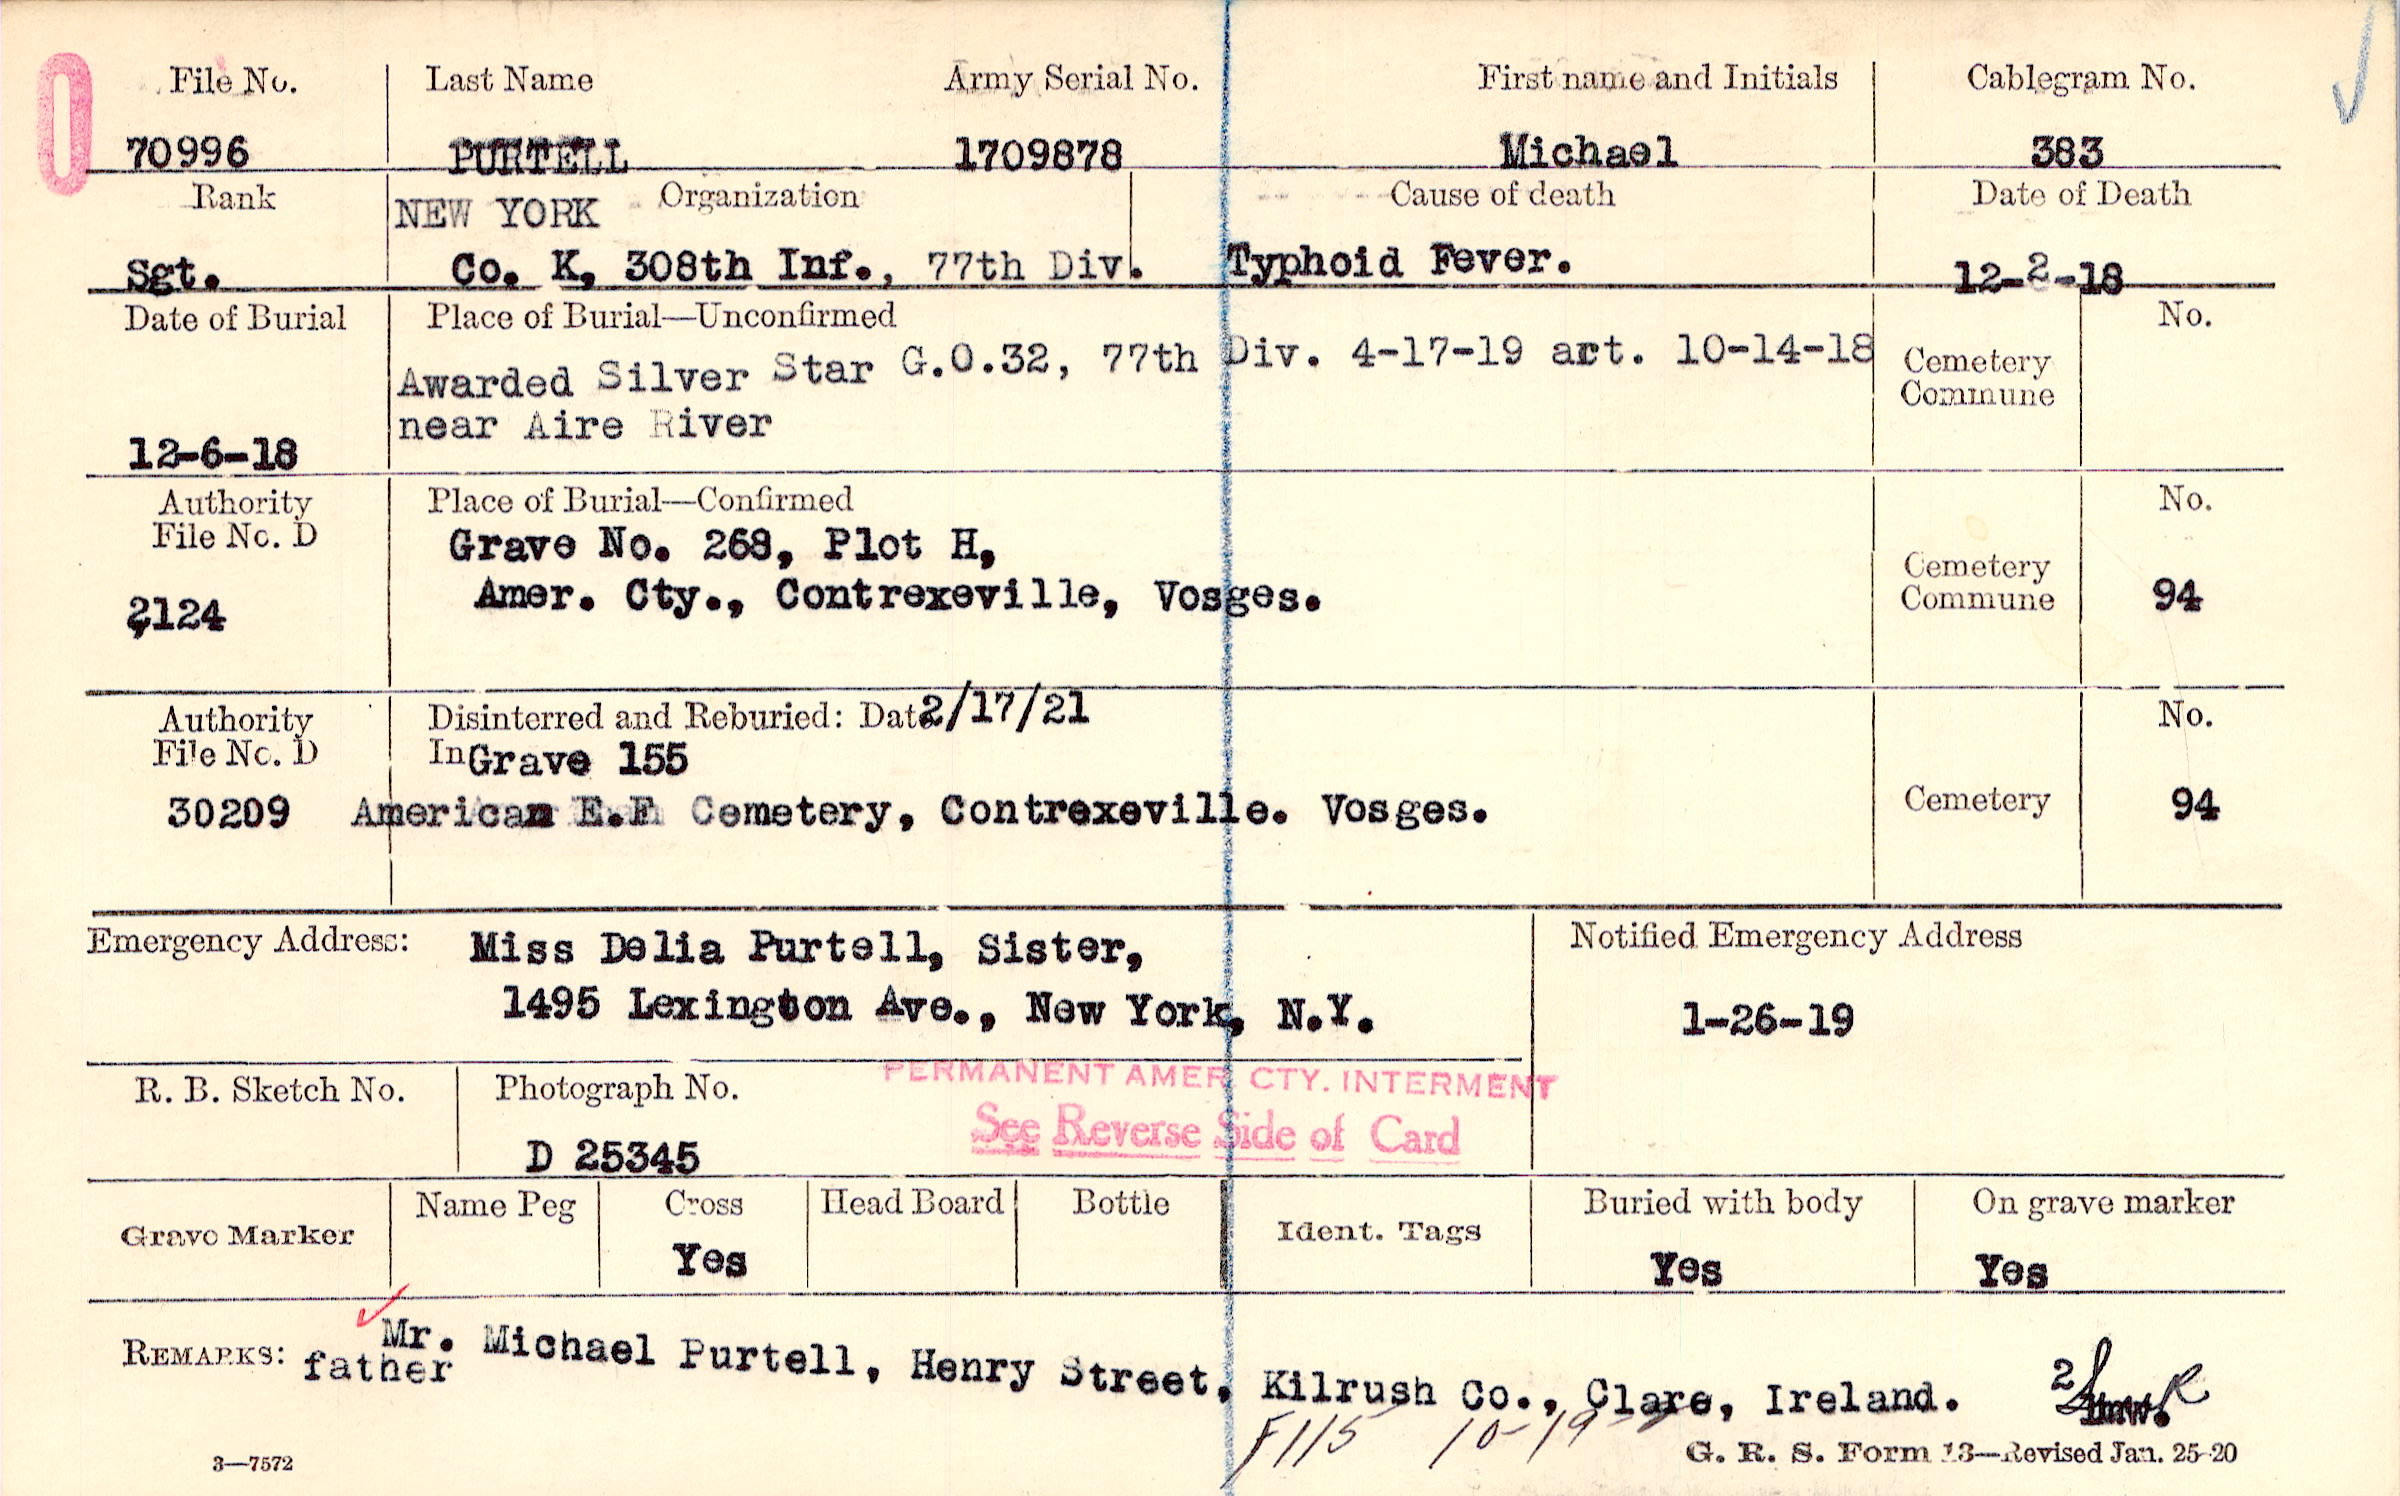 File No. Last Name Army Serial No. First name and Initials Cablegram No.
70996 PURTELL 1709878 Michael 383
Rank Organization Cause of death Date of Death
NEW YORK
Sgt. Co. K, 308th Inf., 77th Div. Typhoid Fever. 12-2-18
Date of Burial Place of Burial—Unconfirmed No.
Awarded Silver Star G.O.32, 77th Div. 4-17-19 act. 10-14-18 Cemetery
near Aire River Commune
12-6-18
Authority Place of Burial—Confirmed No.
File No. D Grave No. 268, Plot H,
Amer. Cty., Contrexeville, Vosges. Cemetery
2124 Commune 94
Authority Disinterred and Reburied: Date 2/17/21 No.
File No. D In Grave 155
30209 American E.F. Cemetery, Contrexeville. Vosges. Cemetery 94
Emergency Address: Miss Delia Purtell, Sister, Notified Emergency Address
1495 Lexington Ave., New York, N.Y. 1-26-19
PERMANENT AMER. CTY. INTERMENT
R. B. Sketch No. Photograph No.
See Reverse Side of Card
D 25345
Grave Marker Name Peg Cross Head Board Bottle Ident. Tags Buried with body On grave marker
Yes Yes Yes
REMARKS: Mr. Michael Purtell, Henry Street, Kilrush Co., Clare, Ireland. 2
father
F115 10-19
3—7572 G. R. S. Form 13—Revised Jan. 25-20